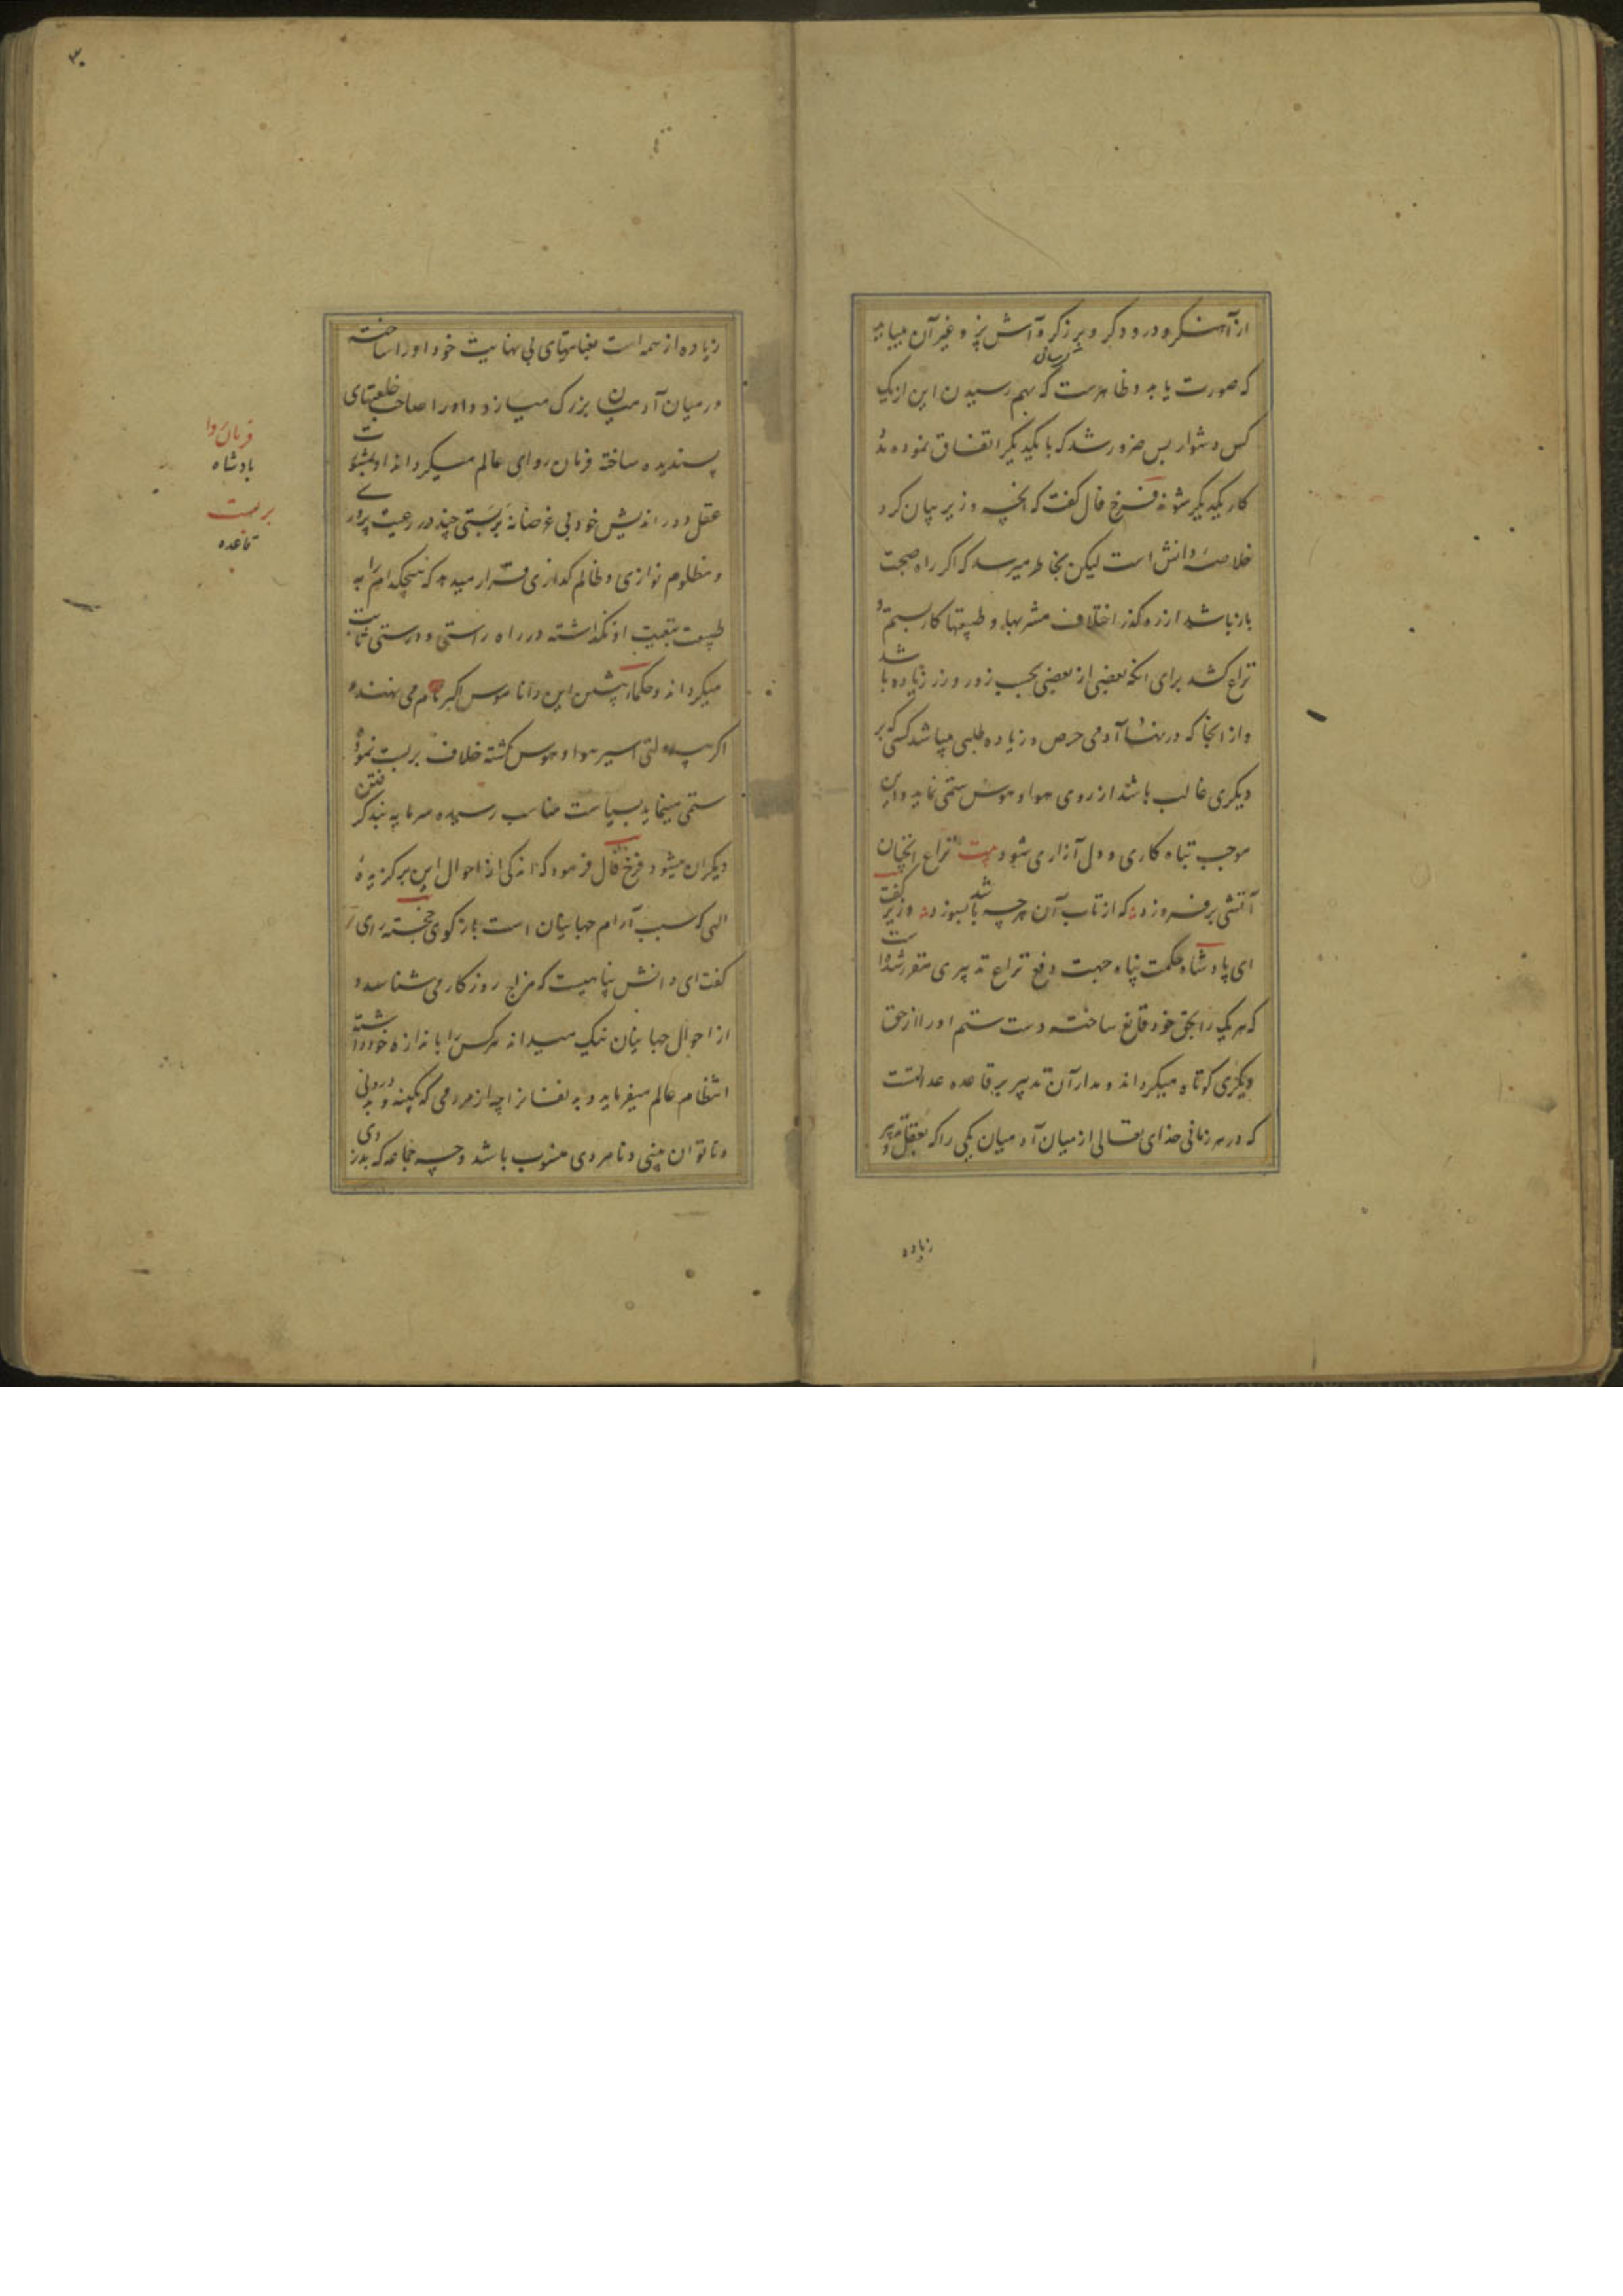 از آهنگر و درودگر و برزگر و آش پز و غیر آن میباید
که صورت یابد و ظاهرست که بهم رسیدن این از یک
کس دشوار پس ضرور شد که با یکدیگر اتفاق نموده مدد
کار یکدیگر شوند فرخ فال گفت که آنچه وزیر بیان کرد
خلاصهٔ دانش است لیکن بخاطر میرسد که اکر راه صحبت
باز باشد از ره کذر اختلاف مشربها و طبیعتها کار بستم و
نزاع کشد برای آنکه بعضی از بعضی بحسب زور و زر زیاده باشد
و از آنجا که در نهاد آدمی حرص و زیاده طلبی میباشد کسی که بر
دیگری غالب باشد از روی هوا و هوس ستمی نماید و این
موجب تباه کاری و دل آزاری شود بیت نزاع آنچنان
آتشی برفروزد که از تاب آن هرچه باشد بسوزد وزیر گفت
ای پادشاه حکمت پناه جهت دفع نزاع تدبیری مقرر شده است
که هر یک را بحق خود قانع ساخته دست ستم او را از حق
دیگری کوتاه میکرداند و مدار آن تدبیر بر قاعده عدالتست
که در هر زمانی خدای تعالی از میان آدمیان یکی را که بعقل و تدبیر
زیاده
۳۰
زیاده از همه است بعنایتهای بی نهایت خود او را ساخته
در میان آدمیان بزرک میسازد و او را صاحب خلعتهای
پسندیده ساخته فرمان روای عالم میکرداند او بمشورت
عقل دور اندیش خود بی غرضانه بربستی چند در رعیت پروری
و مظلوم نوازی و ظالم کدازی قرار میدهد که هیچکدام را به
طبیعت او نکذاشته در راه راستی و درستی ثابت
میکرداند و حکماء پیشین این را ناموس اکبر نام می نهند و
اکر بیدولتی اسیر هوا و هوس کشته خلاف بربست نموده
ستمی مینماید بسیاست مناسب رسیده سرمایه پند گرفتن
دیکران میشود فرخ فال فرمود که اندکی از احوال این برکزیدهٔ
الهی که سبب آرام جهانیان است باز کوی خجسته رای
گفت ای دانش پناهیست که مزاج روزکار می شناسد و
از احوال جهانیان نیک میداند هر کس را باندازه خود داشته
انتظام عالم میفرماید
و ناتوان بینی و نامردی منسوب باشد و چه جماعه که بدزدی
فرمان روا
بادشاه
بربست
قاعده